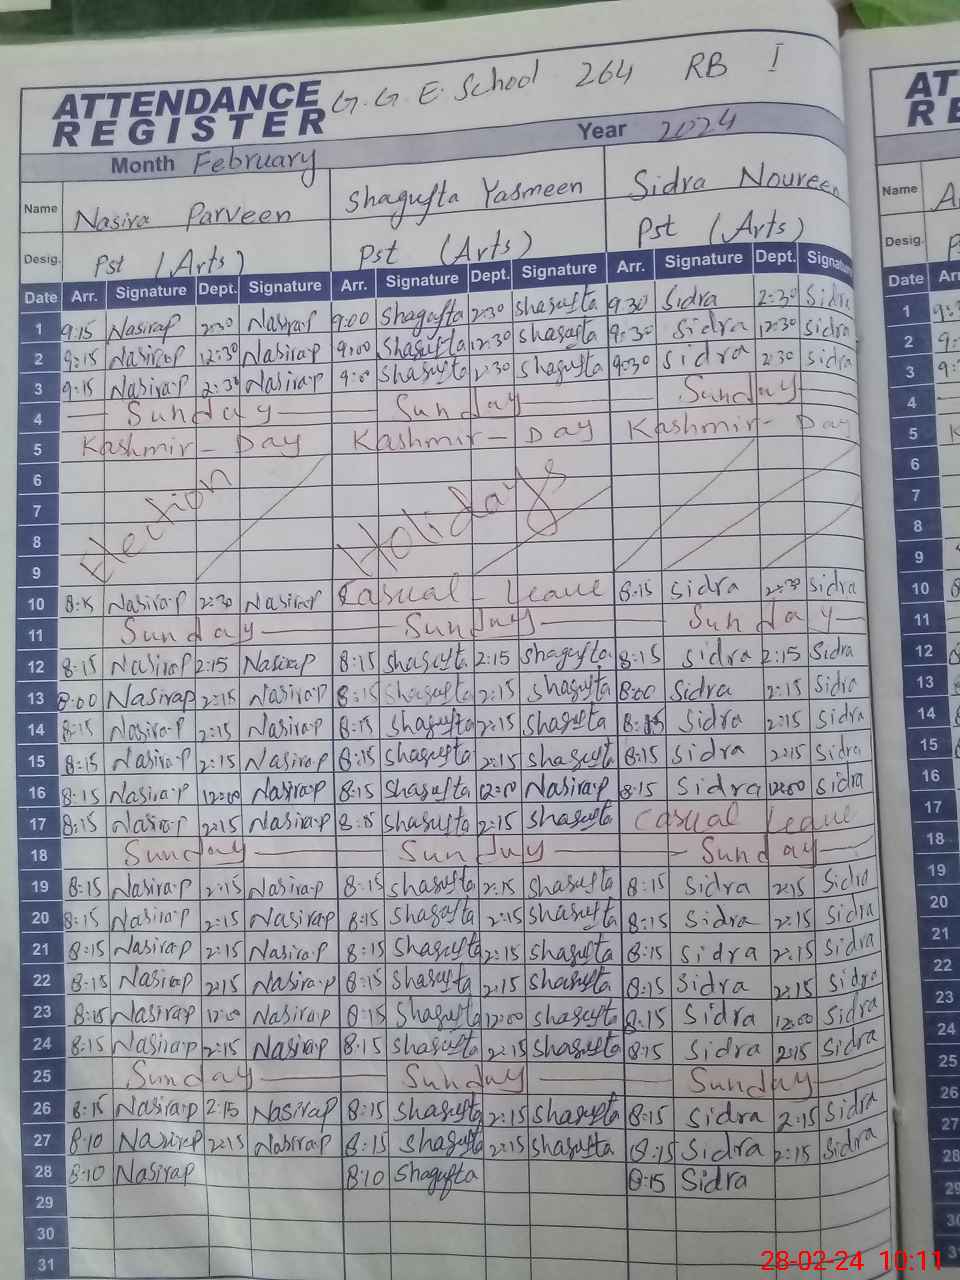 ATTENDANCE REGISTER G.G.E. School 264 RB I
Month February Year 2024
Name Nasira Parveen Shagufta Yasmeen Sidra Noureen
Desig. Pst (Arts) Pst (Arts) Pst (Arts)
Date Arr. Signature Dept. Signature Arr. Signature Dept. Signature Arr. Signature Dept. Signature
1 9:15 Nasira.P 2:30 Nasira.P 9:00 Shagufta 2:30 Shagufta 9:30 Sidra 2:30 Sidra
2 9:15 Nasira.P 12:30 Nasira.P 9:00 Shagufta 12:30 Shagufta 9:30 Sidra 12:30 Sidra
3 9:15 Nasira.P 2:30 Nasira.P Shagufta 2:30 Shagufta 9:30 Sidra 2:30 Sidra
4 Sunday Sunday Sunday
5 Kashmir - Day Kashmir - Day Kashmir - Day
6
7 Election Holidays
8
9
10 8:15 Nasira.P 2:30 Nasira.P Casual - Leave 8:15 Sidra 2:30 Sidra
11 Sunday Sunday Sunday
12 8:15 Nasira.P 2:15 Nasira.P 8:15 Shagufta 2:15 Shagufta 8:15 Sidra 2:15 Sidra
13 8:00 Nasira.P 2:15 Nasira.P 8:15 Shagufta 2:15 Shagufta 8:00 Sidra 2:15 Sidra
14 8:15 Nasira.P 2:15 Nasira.P 8:15 Shagufta 2:15 Shagufta Sidra 2:15 Sidra
15 8:15 Nasira.P 2:15 Nasira.P 8:15 Shagufta 2:15 Shagufta 8:15 Sidra 2:15 Sidra
16 8:15 Nasira.P 12:00 Nasira.P 8:15 Shagufta 12:00 Nasira.P 8:15 Sidra 12:00 Sidra
17 8:15 Nasira.P 2:15 Nasira.P 8:15 Shagufta 2:15 Shagufta Casual Leave
18 Sunday Sunday Sunday
19 8:15 Nasira.P 2:15 Nasira.P 8:15 Shagufta 2:15 Shagufta 8:15 Sidra 2:15 Sidra
20 8:15 Nasira.P 2:15 Nasira.P 8:15 Shagufta 2:15 Shagufta 8:15 Sidra 2:15 Sidra
21 8:15 Nasira.P 2:15 Nasira.P 8:15 Shagufta 2:15 Shagufta 8:15 Sidra 2:15 Sidra
22 8:15 Nasira.P 2:15 Nasira.P 8:15 Shagufta 2:15 Shagufta 8:15 Sidra 2:15 Sidra
23 8:15 Nasira.P 12:00 Nasira.P 8:15 Shagufta 12:00 Shagufta 8:15 Sidra 12:00 Sidra
24 8:15 Nasira.P 2:15 Nasira.P 8:15 Shagufta 2:15 Shagufta 8:15 Sidra 2:15 Sidra
25 Sunday Sunday Sunday
26 8:15 Nasira.P 2:15 Nasira.P 8:15 Shagufta 2:15 Shagufta 8:15 Sidra 2:15 Sidra
27 8:10 Nasira.P 2:15 Nasira.P 8:15 Shagufta 2:15 Shagufta 8:15 Sidra 2:15 Sidra
28 8:10 Nasira.P 8:10 Shagufta 8:15 Sidra
29
30
31
Name
Desig.
Date
1
2
3
4
5
6
7
8
9
10
11
12
13
14
15
16
17
18
19
20
21
22
23
24
25
26
27
28
29
30
28-02-24 10:11